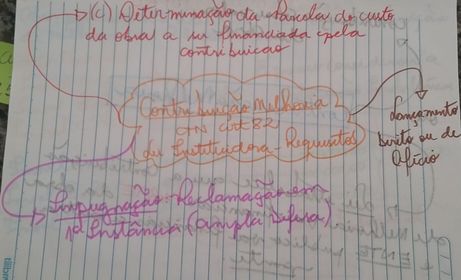 (c) Determinação da Parcela do custo
da obra a ser financiada pela
contribuicao
Contribuição Melhoria
CTN art 82
Lei Instituidora - Requisitos
Lançamento
Direto ou de
Ofício
Impugnação: Reclamação em
1ª Instância (ampla defesa)